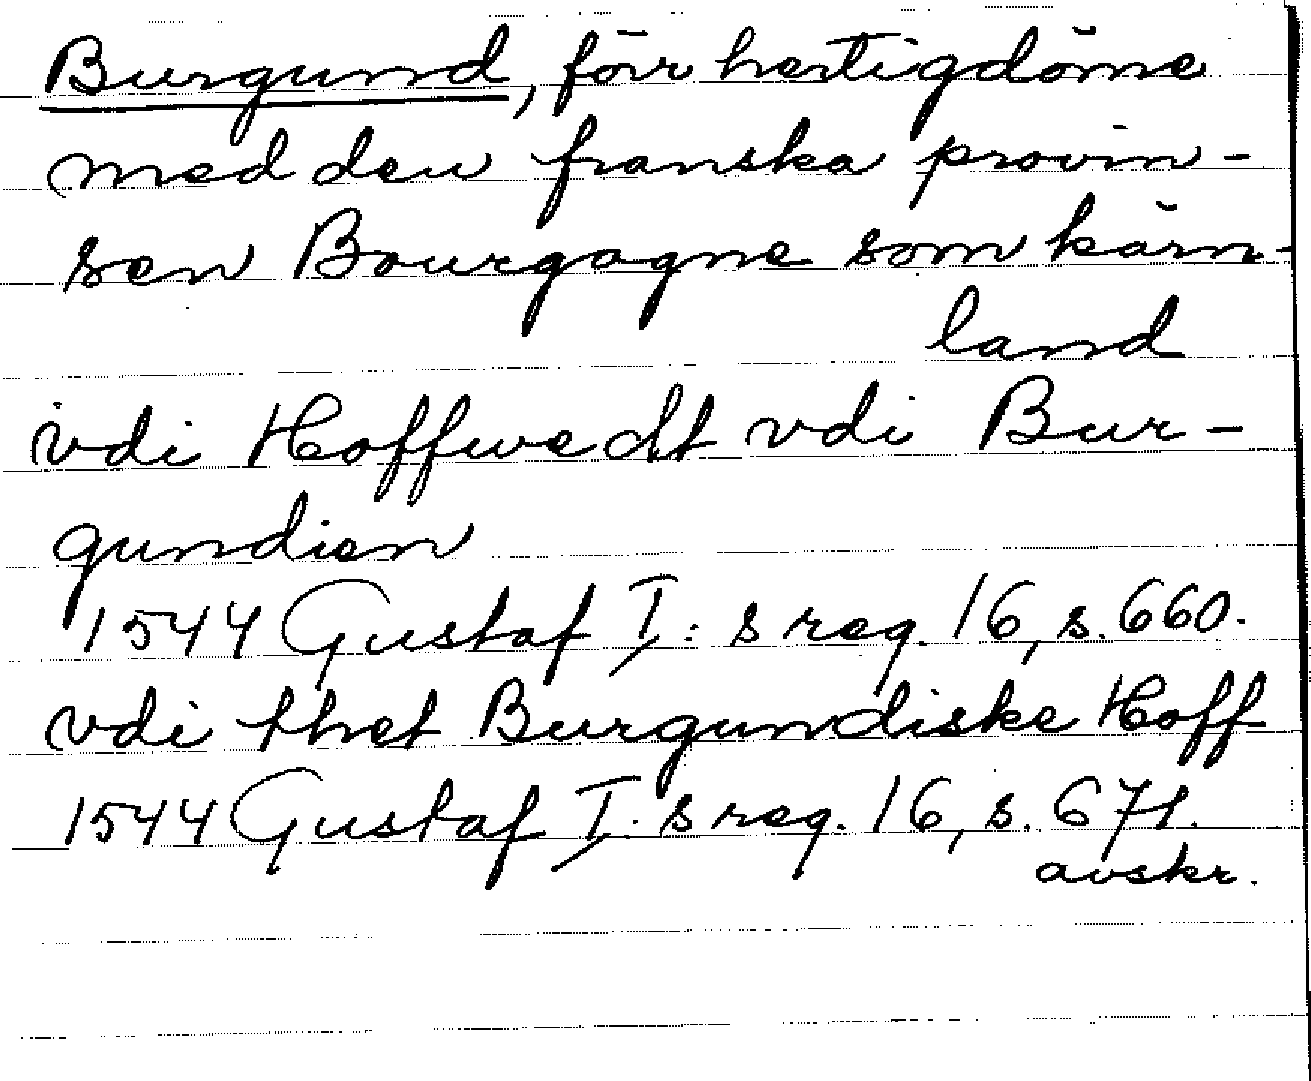 Burgund, förr hertigdöme
med den franska provin-
sen Bourgogne som kärn-
land
vdi Hoffwedt vdi Bur-
gundien
1544 Gustaf I:s reg. 16, s. 660.
vdi thet Burgundiske Hoff
1544 Gustaf I:s reg. 16, s. 671.
avskr.